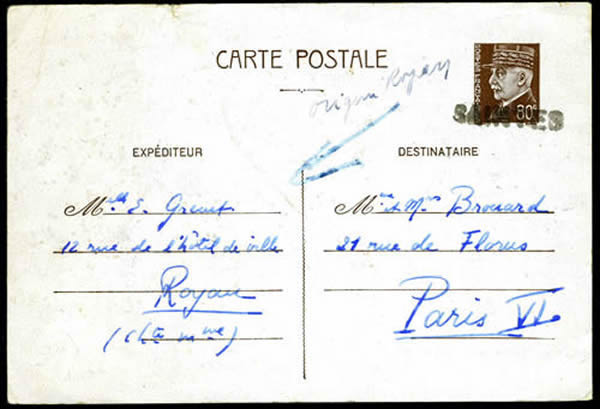 CARTE POSTALE
origine Royan
POSTES FRANÇAISES
80c
SAINTES
EXPÉDITEUR
Mlle E.
12 rue de l'hôtel de ville
Royan
(Chte Mme)
DESTINATAIRE
Mr et Mme Brouard
21 rue de Florus
Paris VI